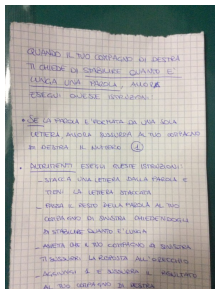 QUANDO IL TUO COMPAGNO DI DESTRA
TI CHIEDE DI STABILIRE QUANTO E'
LUNGA UNA PAROLA, ALLORA
ESEGUI QUESTE ISTRUZIONI:
• SE LA PAROLA È FORMATA DA UNA SOLA
LETTERA ALLORA SUSSURRA AL TUO COMPAGNO
DI DESTRA IL NUMERO 1
• ALTRIMENTI ESEGUI QUESTE ISTRUZIONI:
- STACCA UNA LETTERA DALLA PAROLA E
TIENI LA LETTERA STACCATA
- PASSA IL RESTO DELLA PAROLA AL TUO
COMPAGNO DI SINISTRA CHIEDENDOGLI
DI STABILIRE QUANTO È LUNGA
- ASPETTA CHE IL TUO COMPAGNO DI SINISTRA
TI SUSSURRI LA RISPOSTA ALL'ORECCHIO
- AGGIUNGI 1 E SUSSURRA IL RISULTATO
AL TUO COMPAGNO DI DESTRA